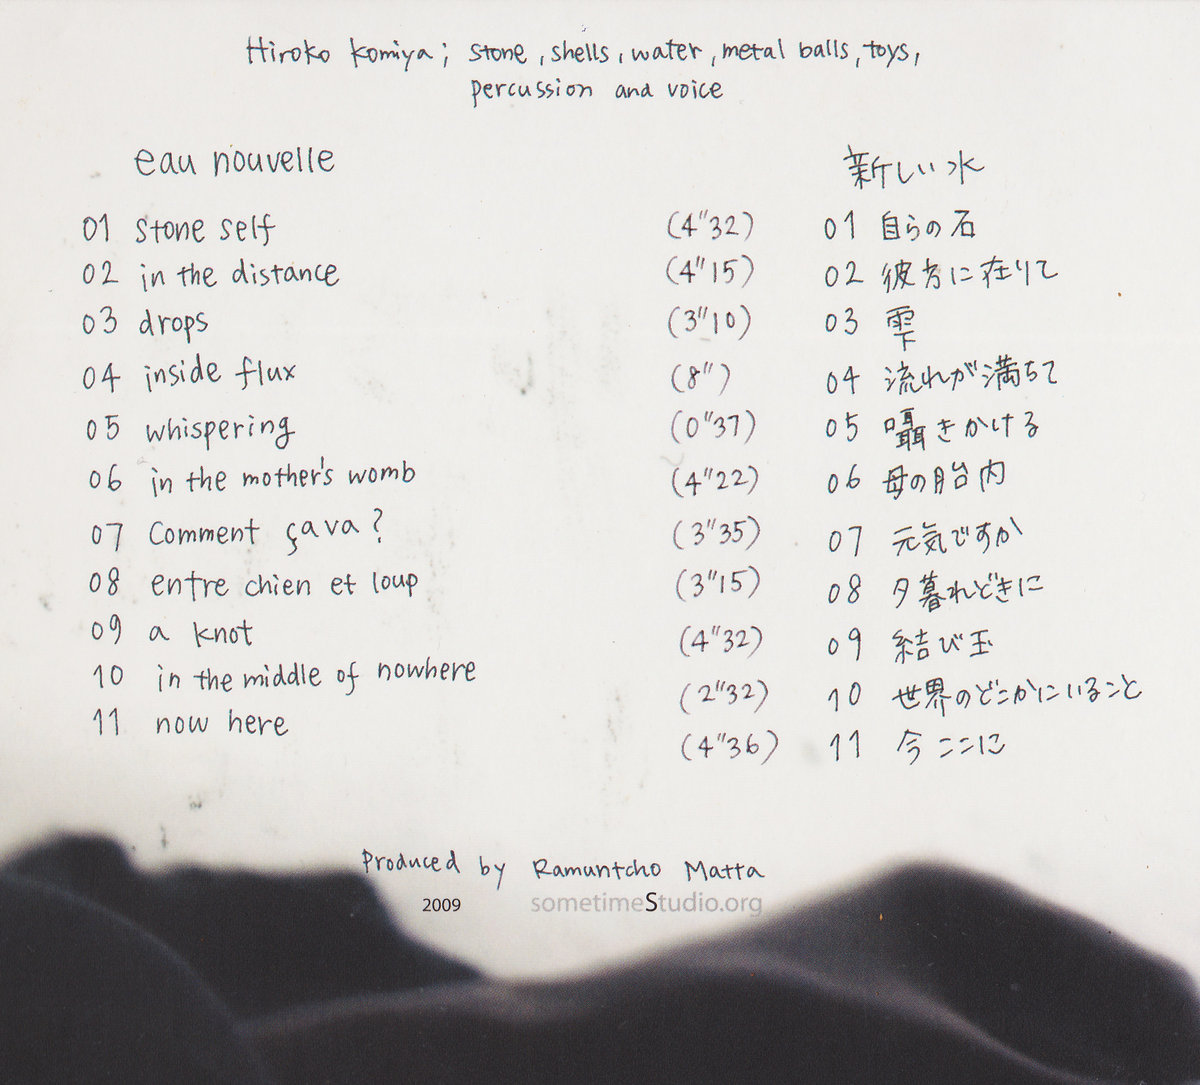 Hiroko Komiya; stone, shells, water, metal balls, toys,
percussion and voice
eau nouvelle
新しい水
01 stone self (4"32) 01 自らの石
02 in the distance (4"15) 02 彼方に在りて
03 drops (3"10) 03 雫
04 inside flux (8") 04 流れが満ちて
05 whispering (0"37) 05 囁きかける
06 in the mother's womb (4"22) 06 母の胎内
07 Comment çava? (3"35) 07 元気ですか
08 entre chien et loup (3"15) 08 夕暮れどきに
09 a knot (4"32) 09 結び玉
10 in the middle of nowhere (2"32) 10 世界のどこかにいること
11 now here (4"36) 11 今ここに
Produced by Ramuntcho Matta
2009 sometimeStudio.org